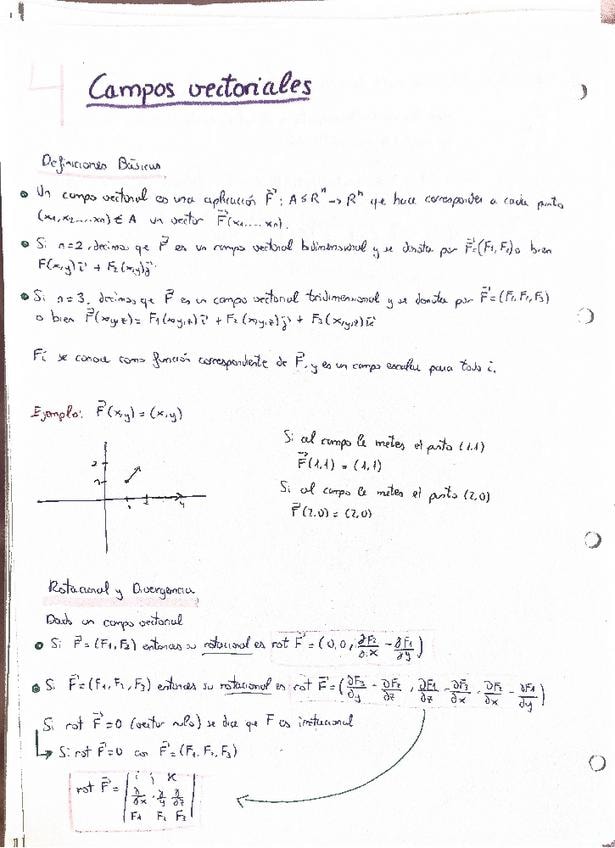 4
Campos vectoriales
Definiciones Básicas
• Un campo vectorial es una aplicación F⃗: A⊆Rⁿ → Rⁿ que hace corresponder a cada punto
(x1,x2....xn) ∈ A un vector F⃗(x1....xn).
• Si n=2, decimos que F⃗ es un campo vectorial bidimensional y se denota por F⃗=(F₁,F₂) o bien
F(x,y)i⃗ + F₂(x,y)j⃗
• Si n=3, decimos que F⃗ es un campo vectorial tridimensional y se denota por F⃗=(F₁,F₂,F₃)
o bien F⃗(x,y,z)= F₁(x,y,z)i⃗ + F₂(x,y,z)j⃗ + F₃(x,y,z)k⃗
Fi se conoce como función correspondiente de F⃗, y es un campo escalar para todo i.
Ejemplo: F⃗(x,y)=(x,y)
Si al campo le metes el punto (1,1)
F⃗(1,1)=(1,1)
Si al campo le metes el punto (2,0)
F⃗(2,0)=(2,0)
2
1
1 2 4
Rotacional y Divergencia
Dado un campo vectorial
• Si F⃗=(F₁,F₂) entonces su rotacional es rot F⃗=(0,0, ∂F₂/∂x − ∂F₁/∂y)
• Si F⃗=(F₁,F₂,F₃) entonces su rotacional es rot F⃗=(∂F₃/∂y − ∂F₂/∂z, ∂F₁/∂z − ∂F₃/∂x, ∂F₂/∂x − ∂F₁/∂y)
Si rot F⃗=0 (vector nulo) se dice que F es irrotacional
↳ Si rot F⃗=0 con F⃗=(F₁,F₂,F₃)
rot F⃗= | i j k
∂/∂x ∂/∂y ∂/∂z
F₁ F₂ F₃ |